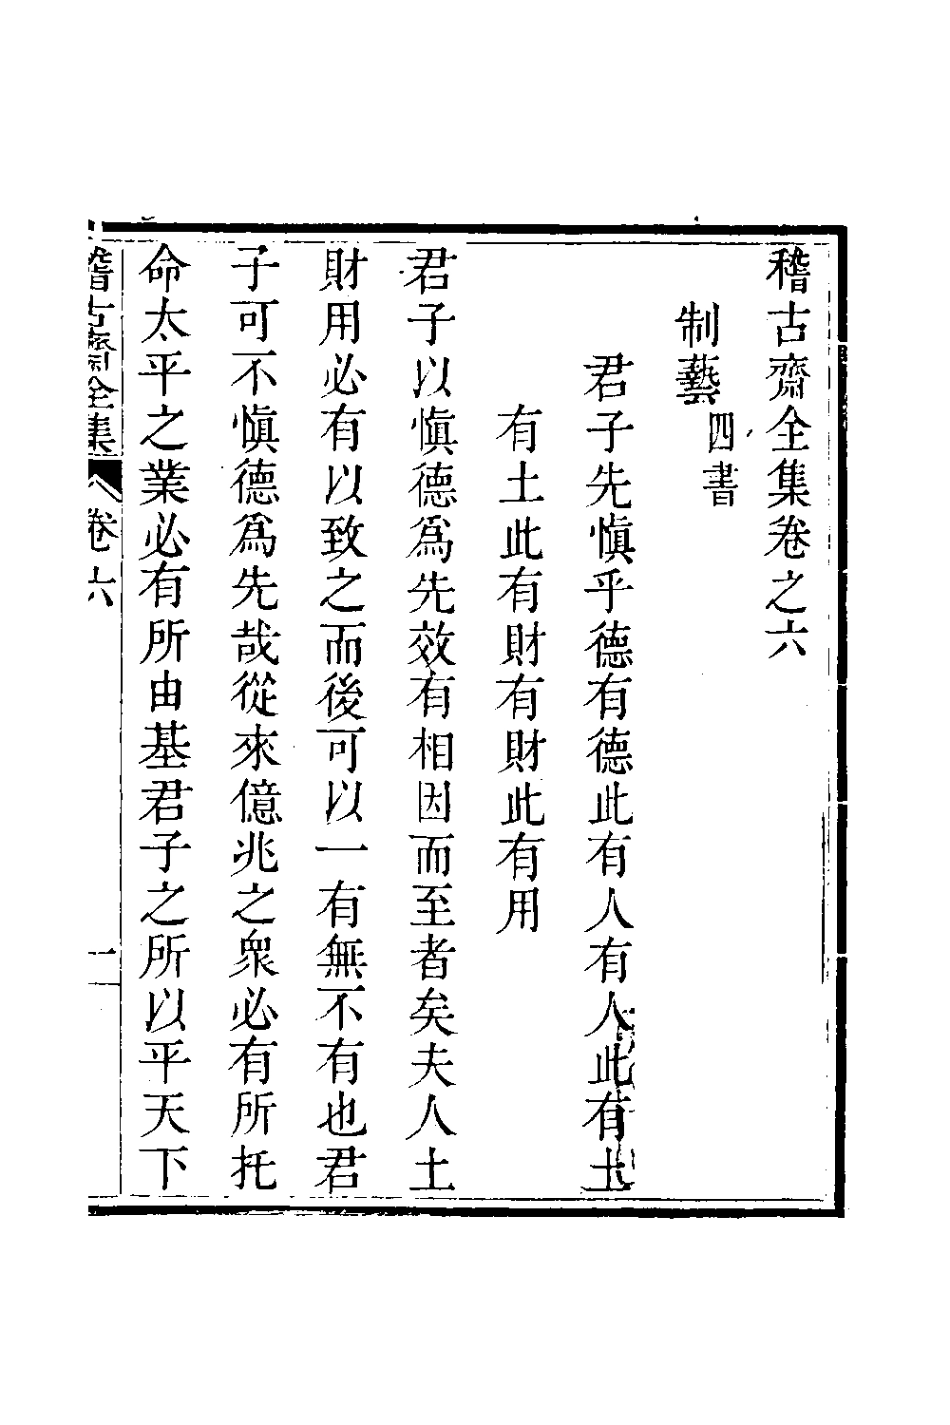 稽古齋全集卷之六
制藝四書
君子先愼乎德有德此有人有人此有土
有土此有財有財此有用
君子以愼德爲先效有相因而至者矣夫人土
財用必有以致之而後可以一有無不有也君
子可不愼德爲先哉從來億兆之衆必有所托
命太平之業必有所由基君子之所以平天下
稽古齋全集 卷六 一